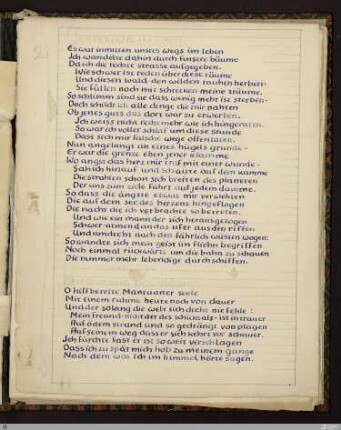 Es war inmitten unsres wegs im leben
Ich wandelte dahin durch finstre bäume
Da ich die rechte strasse aufgegeben.
Wie schwer ist reden über diese räume
Und diesen wald · den wilden rauhen herben ·
Sie füllen noch mit schrecken meine träume.
So schlimm sind sie dass wenig mehr ist sterben:
Doch schildr ich alle dinge die mir nahten
Ob jenes guts das dort war zu erwerben.
Ich weiss nicht recht mehr wie ich hingeraten
So war ich voller schlaf um diese stunde
Dass sich mir falsche wege offenbaten.
Nun angelangt an eines hügels grunde ·
Er war die grenze eben jener klamme
Wo angst das herz mir traf mit einer wunde ·
Sah ich hinauf und schaute auf dem kamme
Die strahlen schon sich breiten des planeten
Der uns zum ziele führt auf jedem damme.
So dass die ängste etwas mir verwehten
Die auf dem see des herzens hingeflogen
Die nacht die ich verbrachte so betreten.
Und wie ein mann der sich herausgezogen
Schwer atmend an das ufer aus den riffen
Und umdreht nach den fährlich wüsten wogen:
So wandte sich mein geist im fliehn begriffen
Noch einmal rückwärts um die bahn zu schauen
Die nummer mehr lebendige durchschiffen.
O hilfbereite Mantuaner seele
Mit einem ruhme heute noch von dauer
Und der solang die welt sich dreht nie fehle:
Mein freund · nicht der des schicksals · ist in trauer
Auf ödem strand und so gedrängt von plagen
Auf seinem weg dass er sich kehrt vor schauer.
Ich fürchte fast er ist so weit verschlagen
Dass ich zu spät mich hob zu meinem gange
Nach dem was ich im himmel hörte sagen.